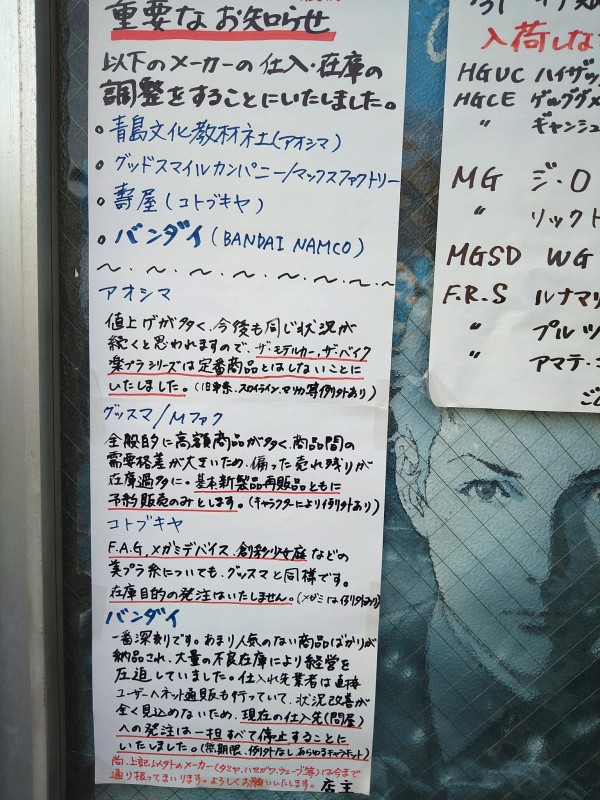 重要なお知らせ
以下のメーカーの仕入・在庫の
調整をすることにいたしました。
。青島文化教材社(アオシマ)
。グッドスマイルカンパニー/マックスファクトリー
。壽屋(コトブキヤ)
。バンダイ(BANDAI NAMCO)
アオシマ
値上げが多く、今後も同じ状況が
続くと思われますので、ザ・モデルカー、ザ・バイク
楽プラシリーズは定番商品とはしないことに
いたしました。(旧車系、スカイライン、マリカ等例外あり)
グッスマ/Mファク
全般的に高額商品が多く、商品間の
需要格差が大きいため、偏った売れ残りが
在庫過多に。基本新製品再販品ともに
予約販売のみとします。(キャラクターにより例外あり)
コトブキヤ
F.A.G,メガミデバイス、創彩少女庭などの
美プラ系についても、グッスマと同様です。
在庫目的の発注はいたしません。(メガミは例外あり)
バンダイ
一番深刻です。あまり人気のない商品ばかりが
納品され、大量の不良在庫により経営を
圧迫していました。仕入れ先業者は直接
ユーザーへネット通販も行っていて、状況改善が
全く見込めないため、現在の仕入先(問屋)
への発注は一担すべて停止することに
いたしました。(無期限、例外なし、あらゆるキャラキット)
尚、上記以外のメーカー(タミヤ、ハセガワ、ウェーブ等)は今まで
通り扱ってまいります。よろしくお願いいたします。 店主
入荷しな
HGUC ハイザッ
HGCE ゲルググメ
〃 ギャンシュ
MG ジ・O
〃 リックド
MGSD WG
F.R.S ルナマリ
〃 プルツ
〃 アマテ・